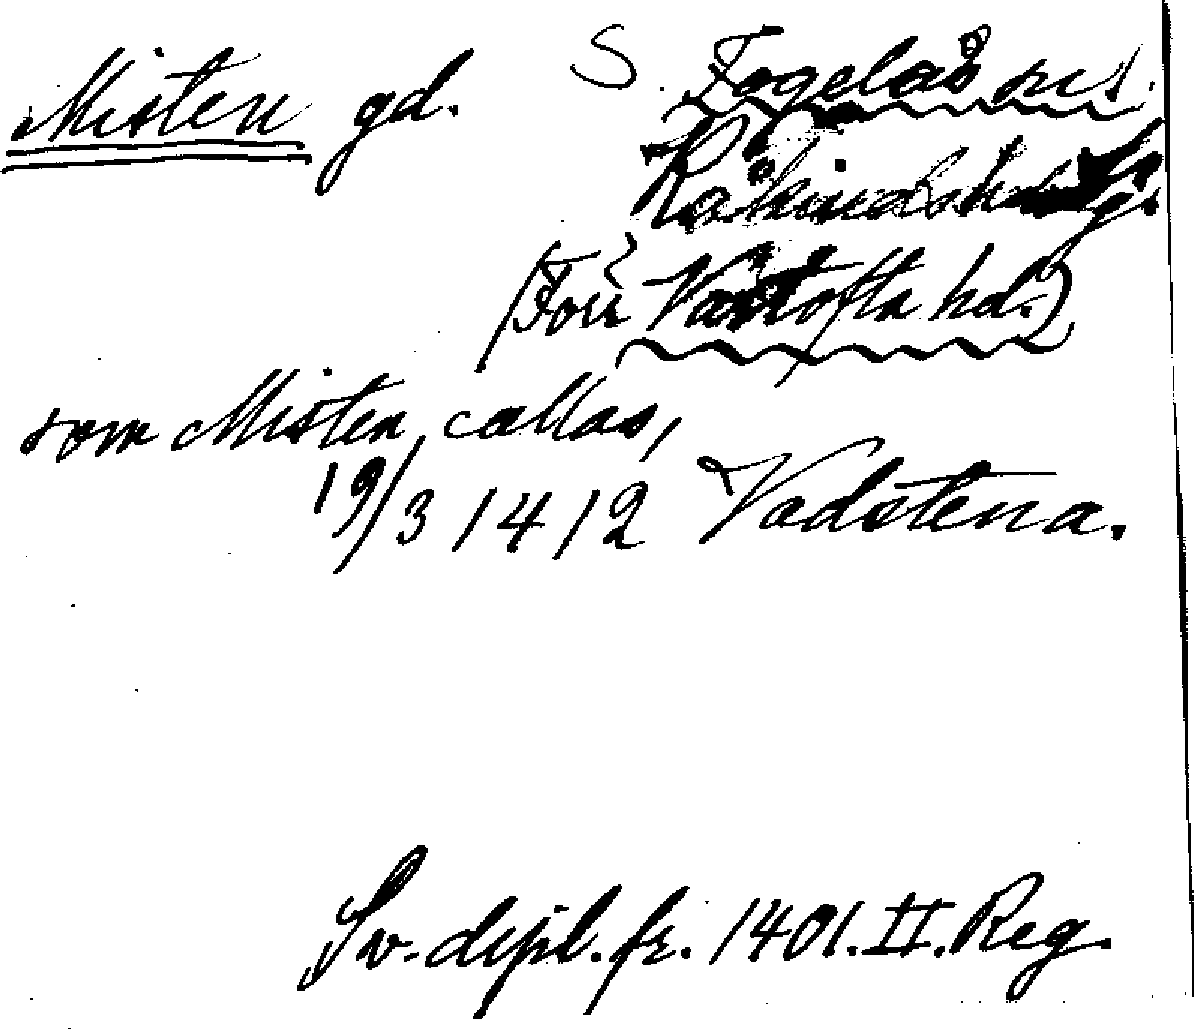 Misten gd. S. Fogelås sn.
Råkinds hd
(Förr Vartofta hd.)
som Misten callas,
19/3 1412 Vadstena.
Sv. dipl. fr. 1401. II. Reg.